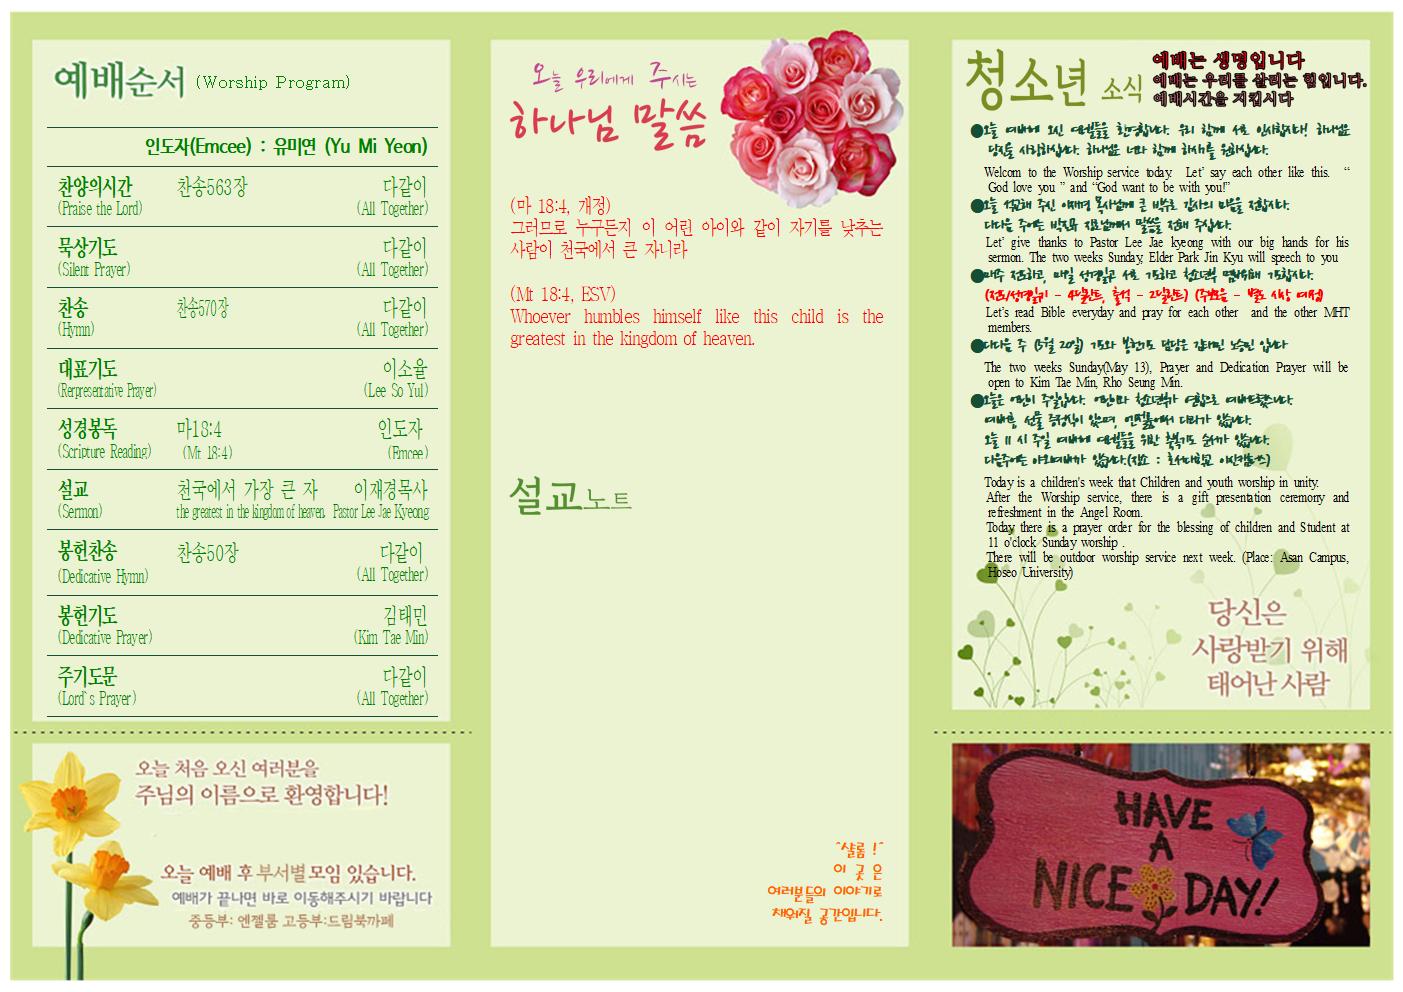 예배순서 (Worship Program)
인도자(Emcee) : 유미연 (Yu Mi Yeon)
찬양의시간 찬송563장 다같이
(Praise the Lord) (All Together)
묵상기도 다같이
(Silent Prayer) (All Together)
찬송 찬송570장 다같이
(Hymn) (All Together)
대표기도 이소율
(Rerpresentative Prayer) (Lee So Yul)
성경봉독 마18:4 인도자
(Scripture Reading) (Mt 18:4) (Emcee)
설교 천국에서 가장 큰 자 이재경목사
(Sermon) the greatest in the kingdom of heaven. Pastor Lee Jae Kyeong
봉헌찬송 찬송50장 다같이
(Dedicative Hymn) (All Together)
봉헌기도 김태민
(Dedicative Prayer) (Kim Tae Min)
주기도문 다같이
(Lord`s Prayer) (All Together)
오늘 처음 오신 여러분을
주님의 이름으로 환영합니다!
오늘 예배 후 부서별 모임 있습니다.
예배가 끝나면 바로 이동해주시기 바랍니다
중등부: 엔젤룸 고등부:드림북까페
오늘 우리에게 주시는
하나님 말씀
(마 18:4, 개정)
그러므로 누구든지 이 어린 아이와 같이 자기를 낮추는
사람이 천국에서 큰 자니라
(Mt 18:4, ESV)
Whoever humbles himself like this child is the
greatest in the kingdom of heaven.
설교노트
"샬롬 !"
이 곳 은
여러분들의 이야기로
채워질 공간입니다.
청소년 소식
예배는 생명입니다
예배는 우리를 살리는 힘입니다.
예배시간을 지킵시다
●오늘 예배에 오신 여러분들을 환영합니다. 우리 함께 서로 인사합시다! 하나님은
당신을 사랑하십니다. 하나님은 너와 함께 하시기를 원하십니다.
Welcom to the Worship service today. Let' say each other like this. “
God love you ” and “God want to be with you!”
●오늘 설교해 주신 이재경 목사님께 큰 박수로 감사의 마음을 전합시다.
다다음 주에는 박진규 장로님께서 말씀을 전해 주십니다.
Let' give thanks to Pastor Lee Jae kyeong with our big hands for his
sermon. The two weeks Sunday, Elder Park Jin Kyu will speech to you
●매주 전도하고, 매일 성경읽고 서로 기도하고 청소년부 멤버위해 기도합시다.
(전도/성경읽기 - 4달란트, 출석 - 2달란트) (주보음 - 별도 시상 예정)
Let's read Bible everyday and pray for each other and the other MHT
members.
●다다음 주 (5월 20일) 기도와 봉헌기도 담당은 김태민 노승민 입니다
The two weeks Sunday(May 13), Prayer and Dedication Prayer will be
open to Kim Tae Min, Rho Seung Min.
●오늘은 어린이 주일입니다. 어린이와 청소년부가 연합으로 예배드렸습니다.
예배후, 선물 증정식이 있으며, 엔젤룸에서 다과가 있습니다.
오늘 11 시 주일 예배에 여러분들을 위한 축복기도 순서가 있습니다.
다음주에는 야외예배가 있습니다.(장소 : 호서대학교 아산캠퍼스)
Today is a children's week that Children and youth worship in unity.
After the Worship service, there is a gift presentation ceremony and
refreshment in the Angel Room.
Today there is a prayer order for the blessing of children and Student at
11 o'clock Sunday worship .
There will be outdoor worship service next week. (Place: Asan Campus,
Hoseo University)
당신은
사랑받기 위해
태어난 사람
HAVE
A
NICE DAY!